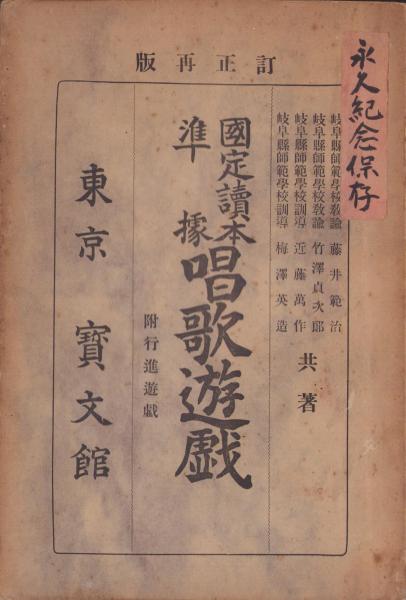 訂正再版
永久紀念保存
岐阜縣師範學校敎諭 藤井範治
岐阜縣師範學校敎諭 竹澤貞次郎
岐阜縣師範學校訓導 近藤萬作
岐阜縣師範學校訓導 梅澤英造
共著
國定讀本
準據
唱歌遊戯
附行進遊戯
東京 寶文館